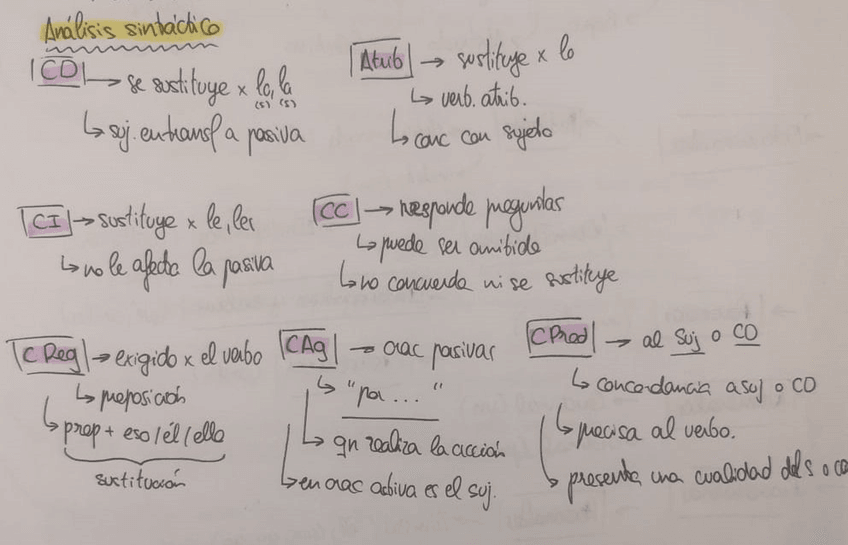 Análisis sintáctico
CD → se sustituye x lo, la
(s) (s)
↳ suj. en transf a pasiva
Atrib → sustituye x lo
↳ verb. atrib.
↳ conc con sujeto
CI → sustituye x le, les
↳ no le afecta la pasiva
CC → responde preguntas
↳ puede ser omitido
↳ no concuerda ni se sustituye
C Reg → exigido x el verbo
↳ preposición
↳ prep + eso/él/ella
sustitución
CAg → orac pasivas
↳ "por ..."
↳ qn realiza la acción
↳ en orac activa es el suj.
CPred → al Suj o CD
↳ concordancia a suj o CD
↳ precisa al verbo.
↳ presenta una cualidad del s o CD